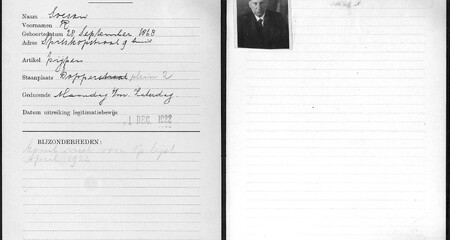 Naam Soesan
Voornamen R
Geboortedatum 28 September 1868
Adres Spitskopstraat 9 huis
Artikel
Staanplaats Dapperstraat plein 2
Gedurende Maandag t/m Zaterdag.
Datum uitreiking legitimatiebewijs 1 DEC. 1922
BIJZONDERHEDEN:
Komt niet voor op lijst
April 19